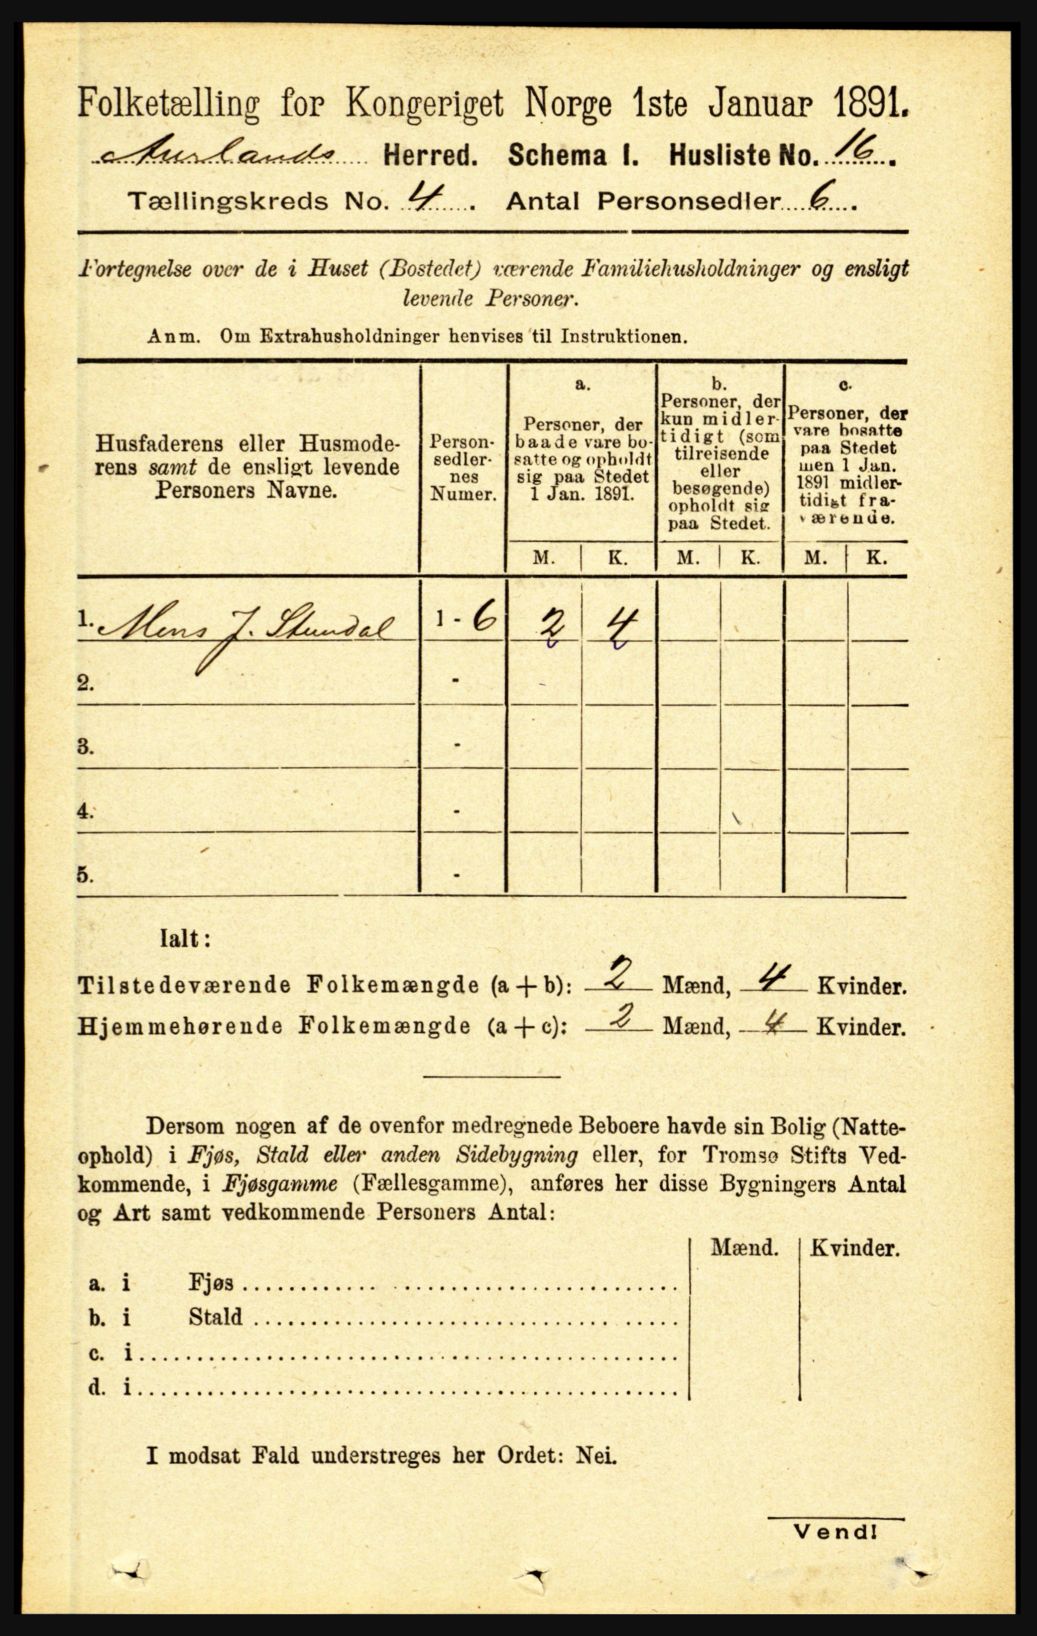 Folketælling for Kongeriget Norge 1ste Januar 1891.
Aurlands Herred. Schema I. Husliste No. 16.
Tællingskreds No. 4. Antal Personsedler 6.
Fortegnelse over de i Huset (Bostedet) værende Familiehusholdninger og ensligt
levende Personer.
Anm. Om Extrahusholdninger henvises til Instruktionen.
Husfaderens eller Husmode-
rens samt de ensligt levende
Personers Navne.
Person-
sedler-
nes
Numer.
a.
Personer, der
baade vare bo-
satte og opholdt
sig paa Stedet
1 Jan. 1891.
b.
Personer, der
kun midler-
tidigt (som
tilreisende
eller
besøgende)
opholdt sig
paa Stedet.
c.
Personer, der
vare bosatte
paa Stedet
men 1 Jan.
1891 midler-
tidigt fra-
værende.
M. K. M. K. M. K.
1. Mons J. Stundal 1 - 6 2 4
2. -
3. -
4. -
5. -
Ialt:
Tilstedeværende Folkemængde (a+b): 2 Mænd, 4 Kvinder.
Hjemmehørende Folkemængde (a+c): 2 Mænd, 4 Kvinder.
Dersom nogen af de ovenfor medregnede Beboere havde sin Bolig (Natte-
ophold) i Fjøs, Stald eller anden Sidebygning eller, for Tromsø Stifts Ved-
kommende, i Fjøsgamme (Fællesgamme), anføres her disse Bygningers Antal
og Art samt vedkommende Personers Antal:
Mænd. Kvinder.
a. i Fjøs
b. i Stald
c. i
d. i
I modsat Fald understreges her Ordet: Nei.
Vend!